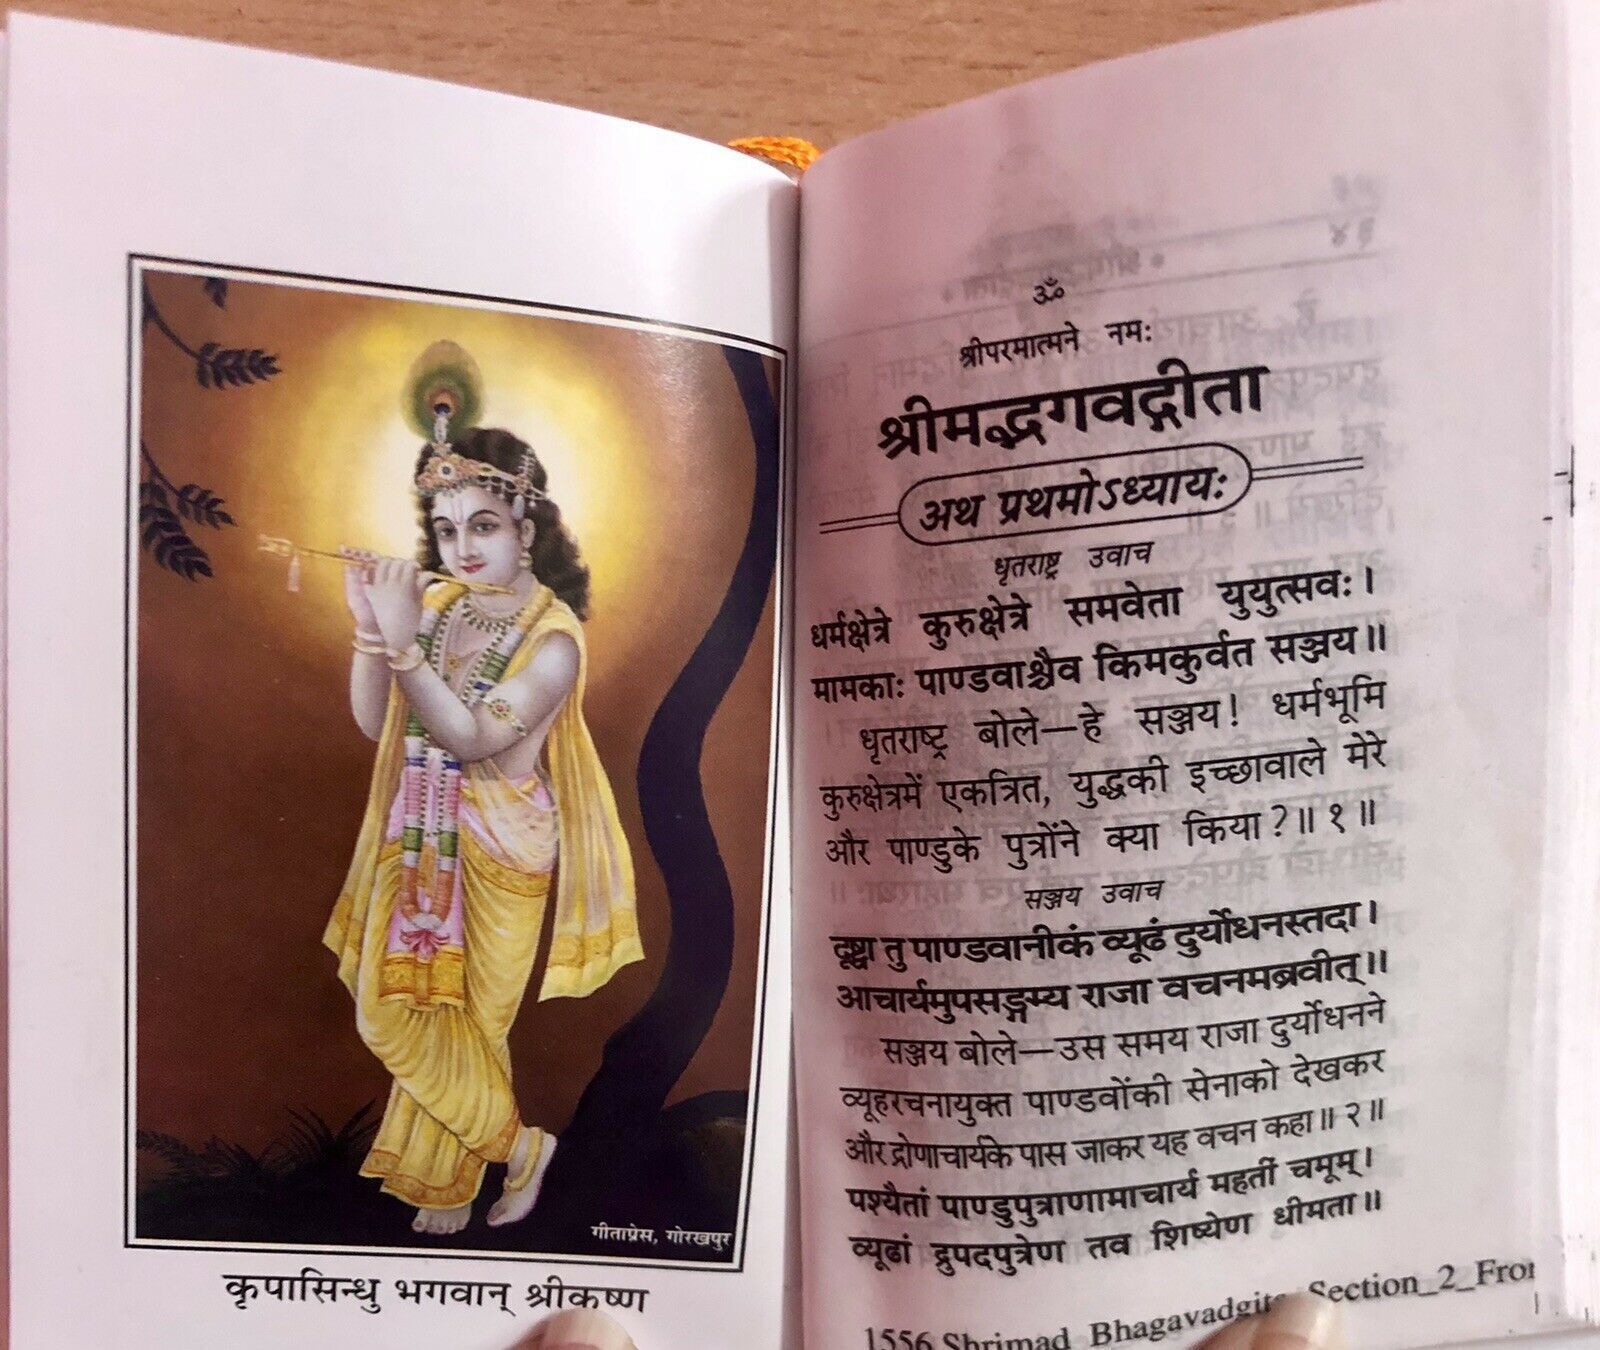 गीताप्रेस, गोरखपुर
कृपासिन्धु भगवान् श्रीकृष्ण
ॐ
श्रीपरमात्मने नमः
श्रीमद्भगवद्गीता
अथ प्रथमोऽध्यायः
धृतराष्ट्र उवाच
धर्मक्षेत्रे कुरुक्षेत्रे समवेता युयुत्सवः।
मामकाः पाण्डवाश्चैव किमकुर्वत सञ्जय॥
धृतराष्ट्र बोले—हे सञ्जय! धर्मभूमि
कुरुक्षेत्रमें एकत्रित, युद्धकी इच्छावाले मेरे
और पाण्डुके पुत्रोंने क्या किया?॥ १॥
सञ्जय उवाच
दृष्ट्वा तु पाण्डवानीकं व्यूढं दुर्योधनस्तदा।
आचार्यमुपसङ्गम्य राजा वचनमब्रवीत्॥
सञ्जय बोले—उस समय राजा दुर्योधनने
व्यूहरचनायुक्त पाण्डवोंकी सेनाको देखकर
और द्रोणाचार्यके पास जाकर यह वचन कहा॥ २॥
पश्यैतां पाण्डुपुत्राणामाचार्य महतीं चमूम्।
व्यूढां द्रुपदपुत्रेण तव शिष्येण धीमता॥
1556 Shrimad Bhagavadgita Section_2_Fron